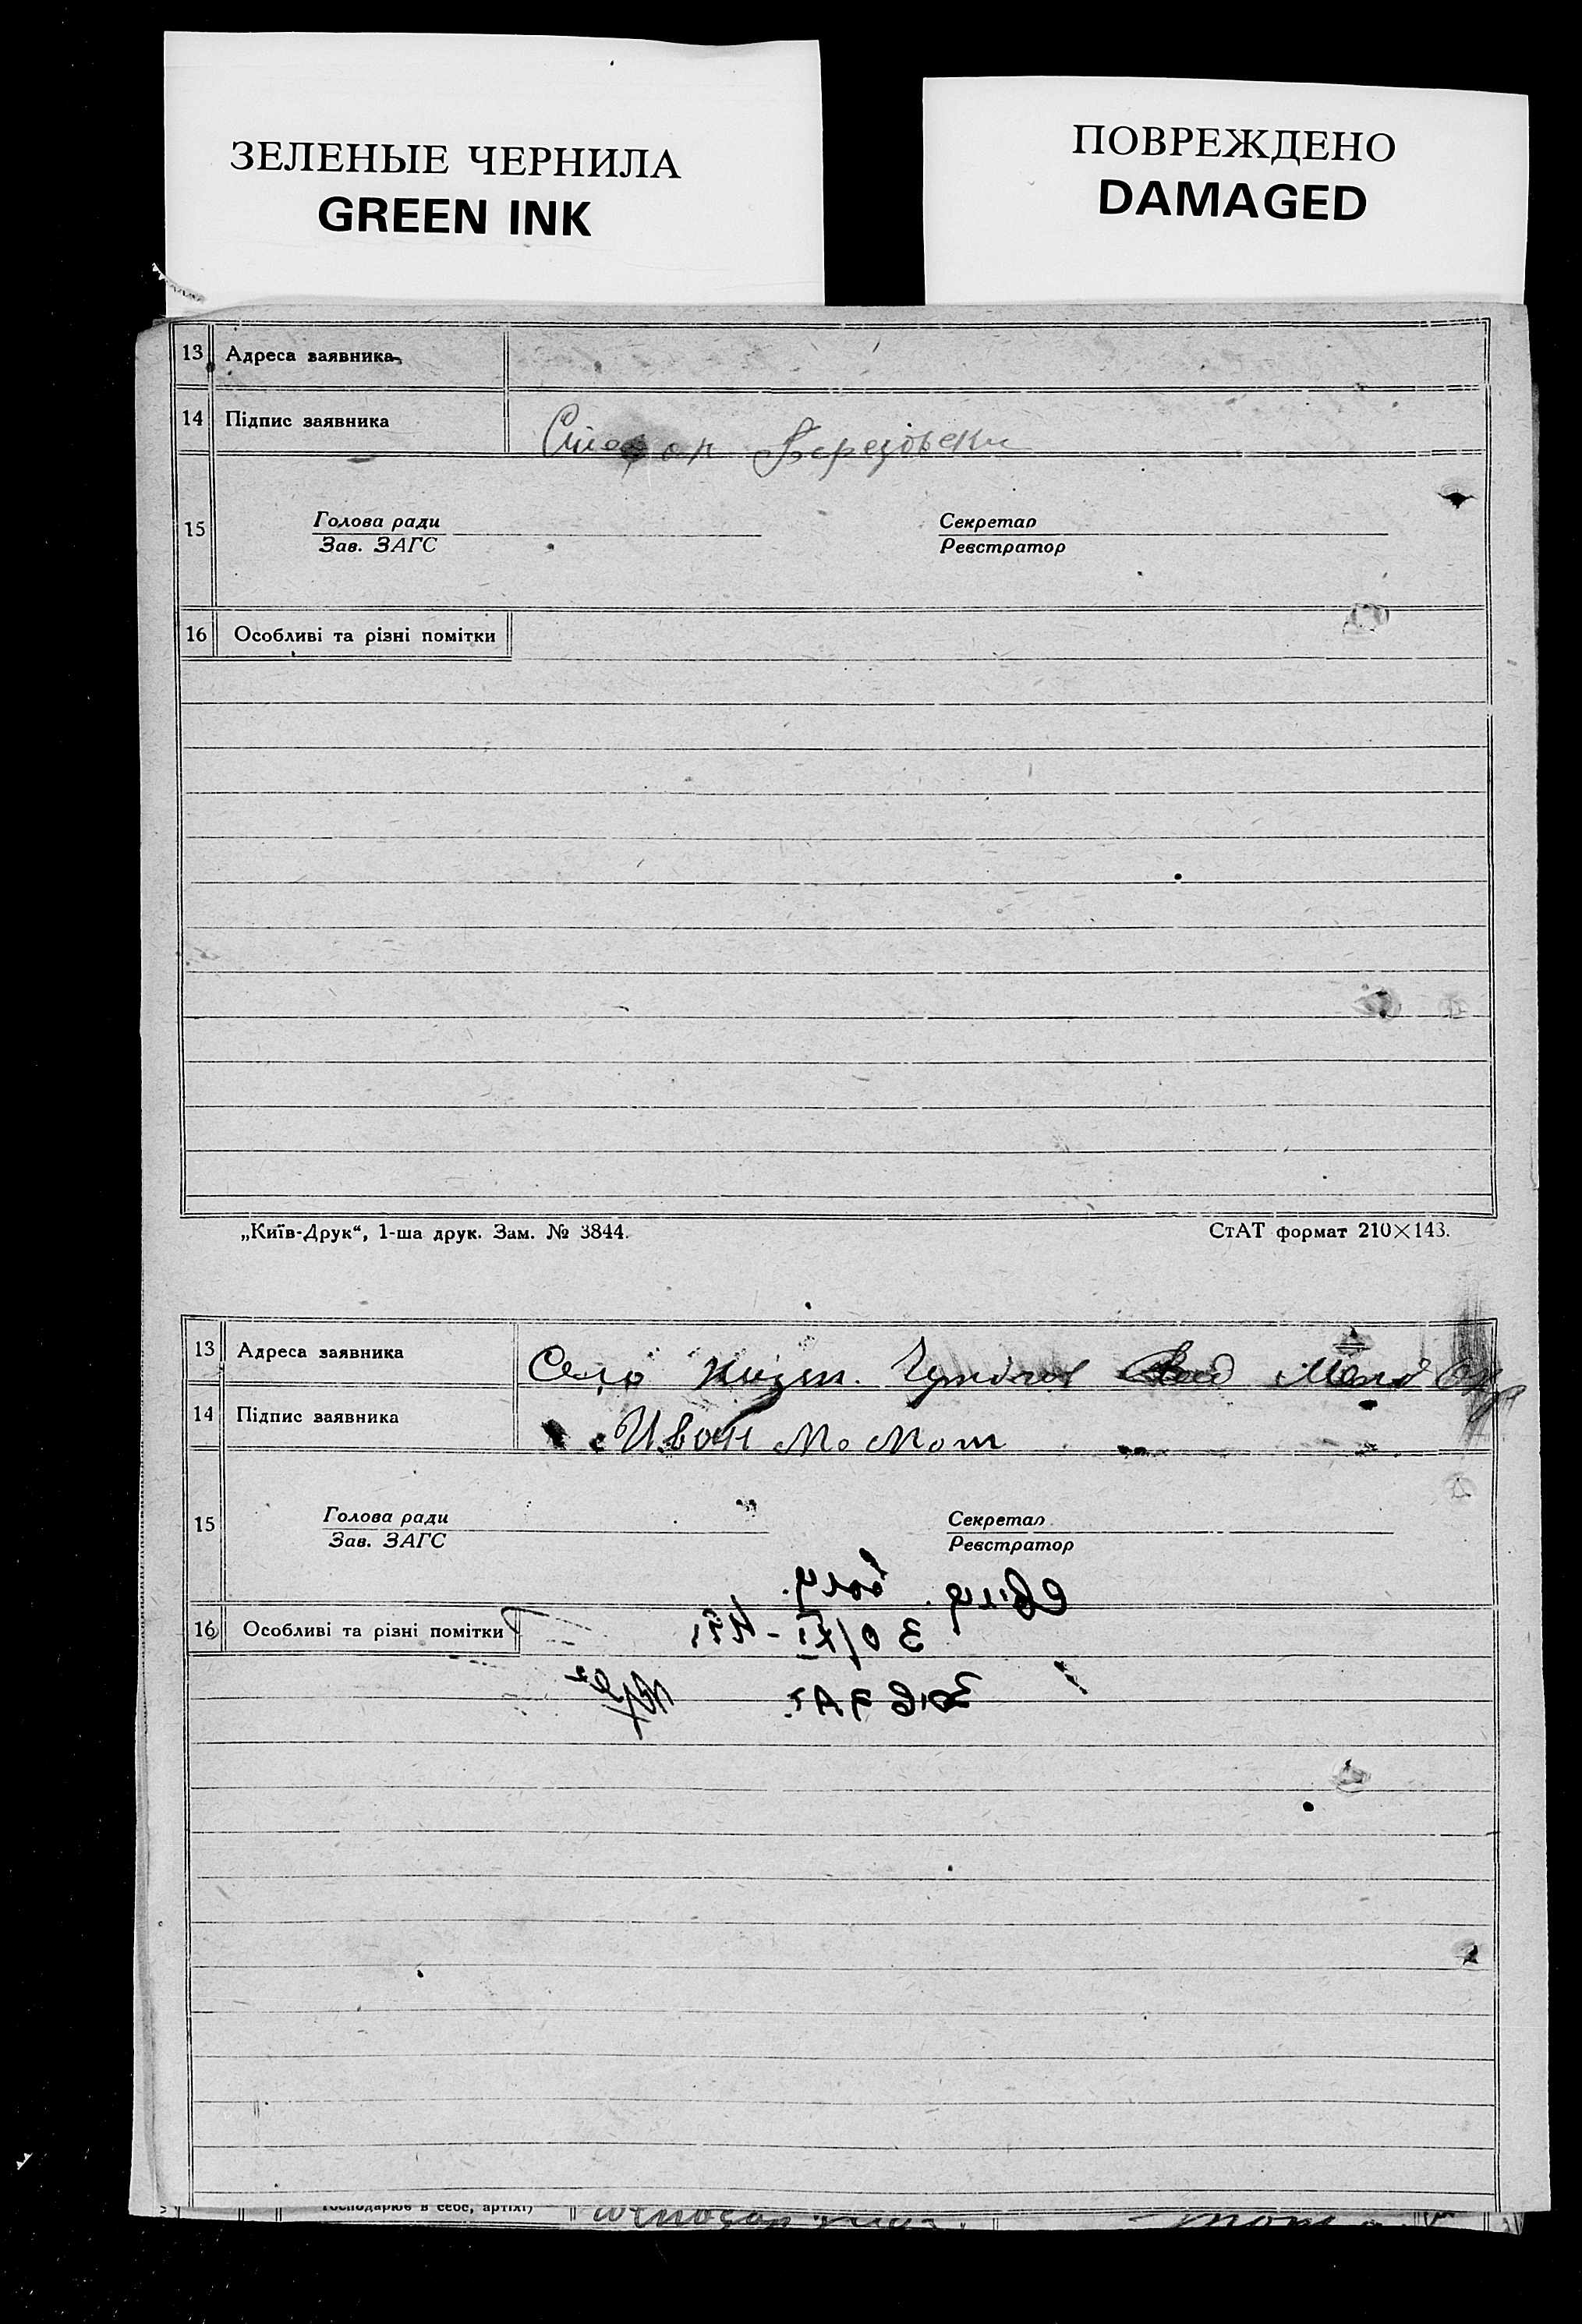 ЗЕЛЕНЫЕ ЧЕРНИЛА
GREEN INK
ПОВРЕЖДЕНО
DAMAGED
13 Адреса заявника
14 Підпис заявника Стефан Березовски
15 Голова ради Секретар
Зав. ЗАГС Реєстратор
16 Особливі та різні помітки
„Київ-Друк“, 1-ша друк. Зам. № 3844.
СтАТ формат 210×143.
13 Адреса заявника Село
14 Підпис заявника Иван Момот
15 Голова ради Секретар
Зав. ЗАГС Реєстратор
16 Особливі та різні помітки
30/XI
Господарює в себе, артілі)